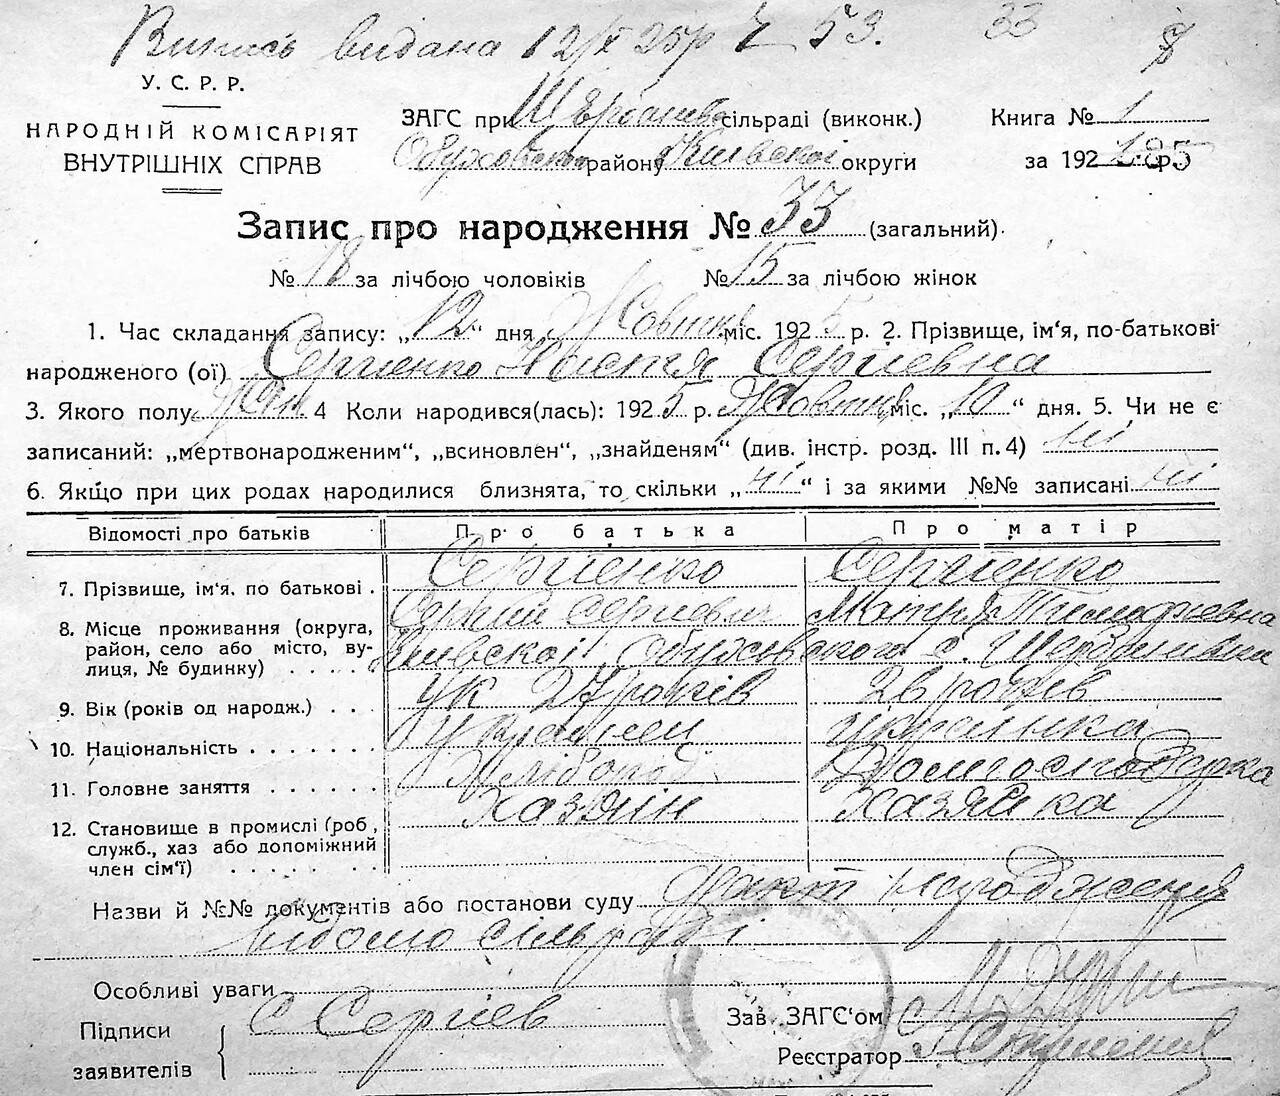 Випись видана 12/X 25р № 53. 33
У. С. Р. Р.
НАРОДНІЙ КОМІСАРІЯТ
ВНУТРІШНІХ СПРАВ
ЗАГС при сільраді (виконк.)
Книга № 1
Обуховського району Київської округи
за 192 р.
Запис про народження № 33 (загальний).
№ 18 за лічбою чоловіків № 15 за лічбою жінок
1. Час складання запису: „12“ дня Жовтня міс. 1925 р. 2. Прізвище, ім‘я, по-батькові
народженого (ої) Сергієнко Сергієвна
3. Якого полу жін 4 Коли народився(лась): 1925 р. Жовтня міс. „10“ дня. 5. Чи не є
записаний: „мертвонародженим“, „всиновлен“, „знайденям“ (див. інстр. розд. III п. 4) ні
6. Якщо при цих родах народилися близнята, то скільки „ні“ і за якими №№ записані ні
Відомості про батьків Про батька Про матір
7. Прізвище, ім‘я. по батькові . Сергієнко Сергієнко
Сергий Сергієвич Мотря Тимофієвна
8. Місце проживання (округа,
район, село або місто, ву-
лиця, № будинку) . . . . . Київської Обуховського с.
9. Вік (років од народж.) . . 27 років 26 років
10. Національність . . . . . . . Українец Українка
11. Головне заняття . . . . . . Хлібороб Домгосподарка
12. Становище в промислі (роб,
служб., хаз або допоміжний
член сім‘ї) . . . . . . . Хазяїн Хазяйка
Назви й №№ документів або постанови суду факт народження
відомо сільраді
Особливі уваги
Підписи
заявителів
С Сергієв
Зав. ЗАГС‘ом
Реєстратор